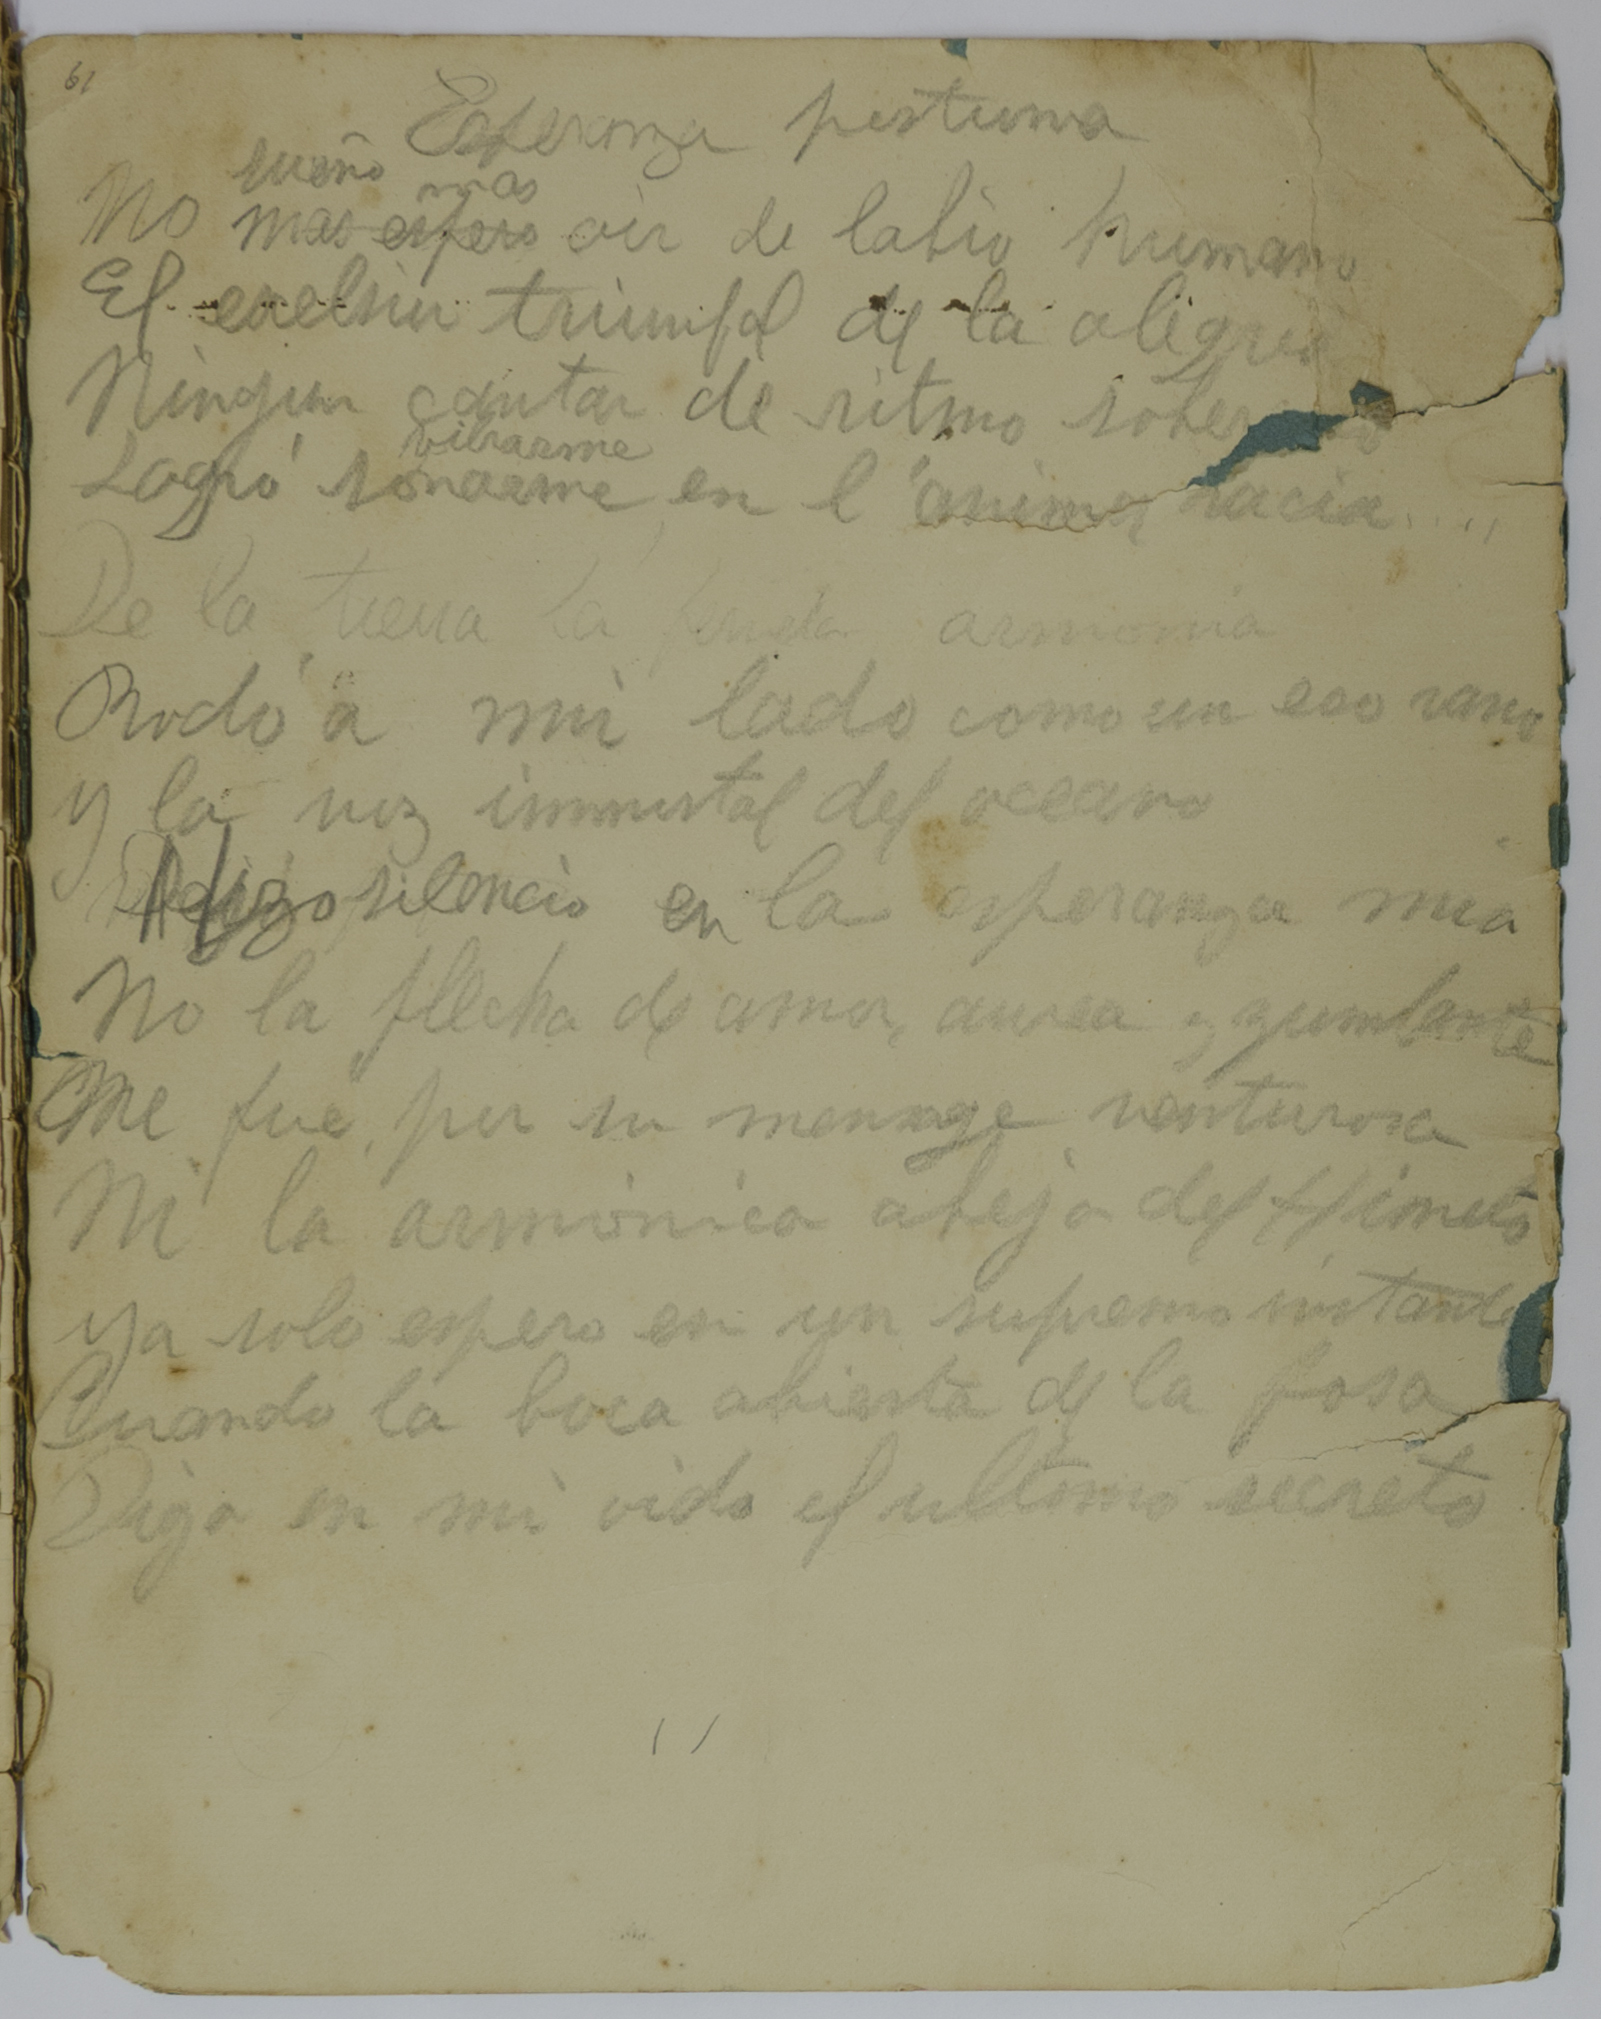 61
Esperanza postuma
sueño mas
No mas espero oir de labio humano
El excelsior triumfal de la alegria
Ningun cantar de ritmo sober
vibrarme
Logró sonarme en l'anima vacia....
De la tierra la armonia
Rodó a mi lado como un eco vano
y la voz inmortal del oceano
Hizo silencio en la esperanza mia
No la flecha de amor, aurea y zumbante
Me fue, por su mensage venturosa
Ni la armónica abeja del Himeto
ya solo espero en un supremo instante
Cuando la boca abierta de la fosa
Diga en mi oido el ultimo secreto